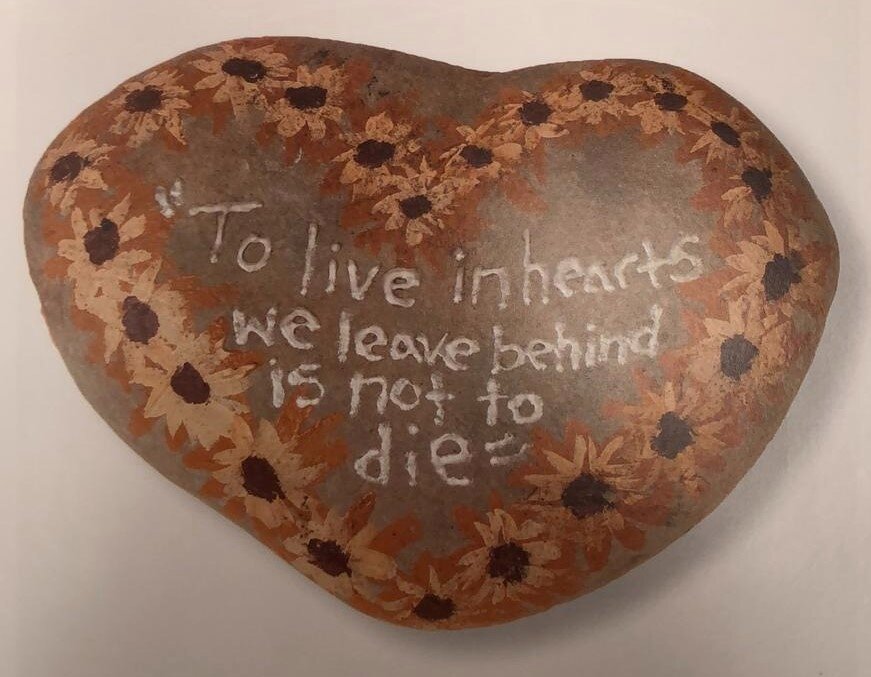 "To live in hearts
we leave behind
is not to
die"